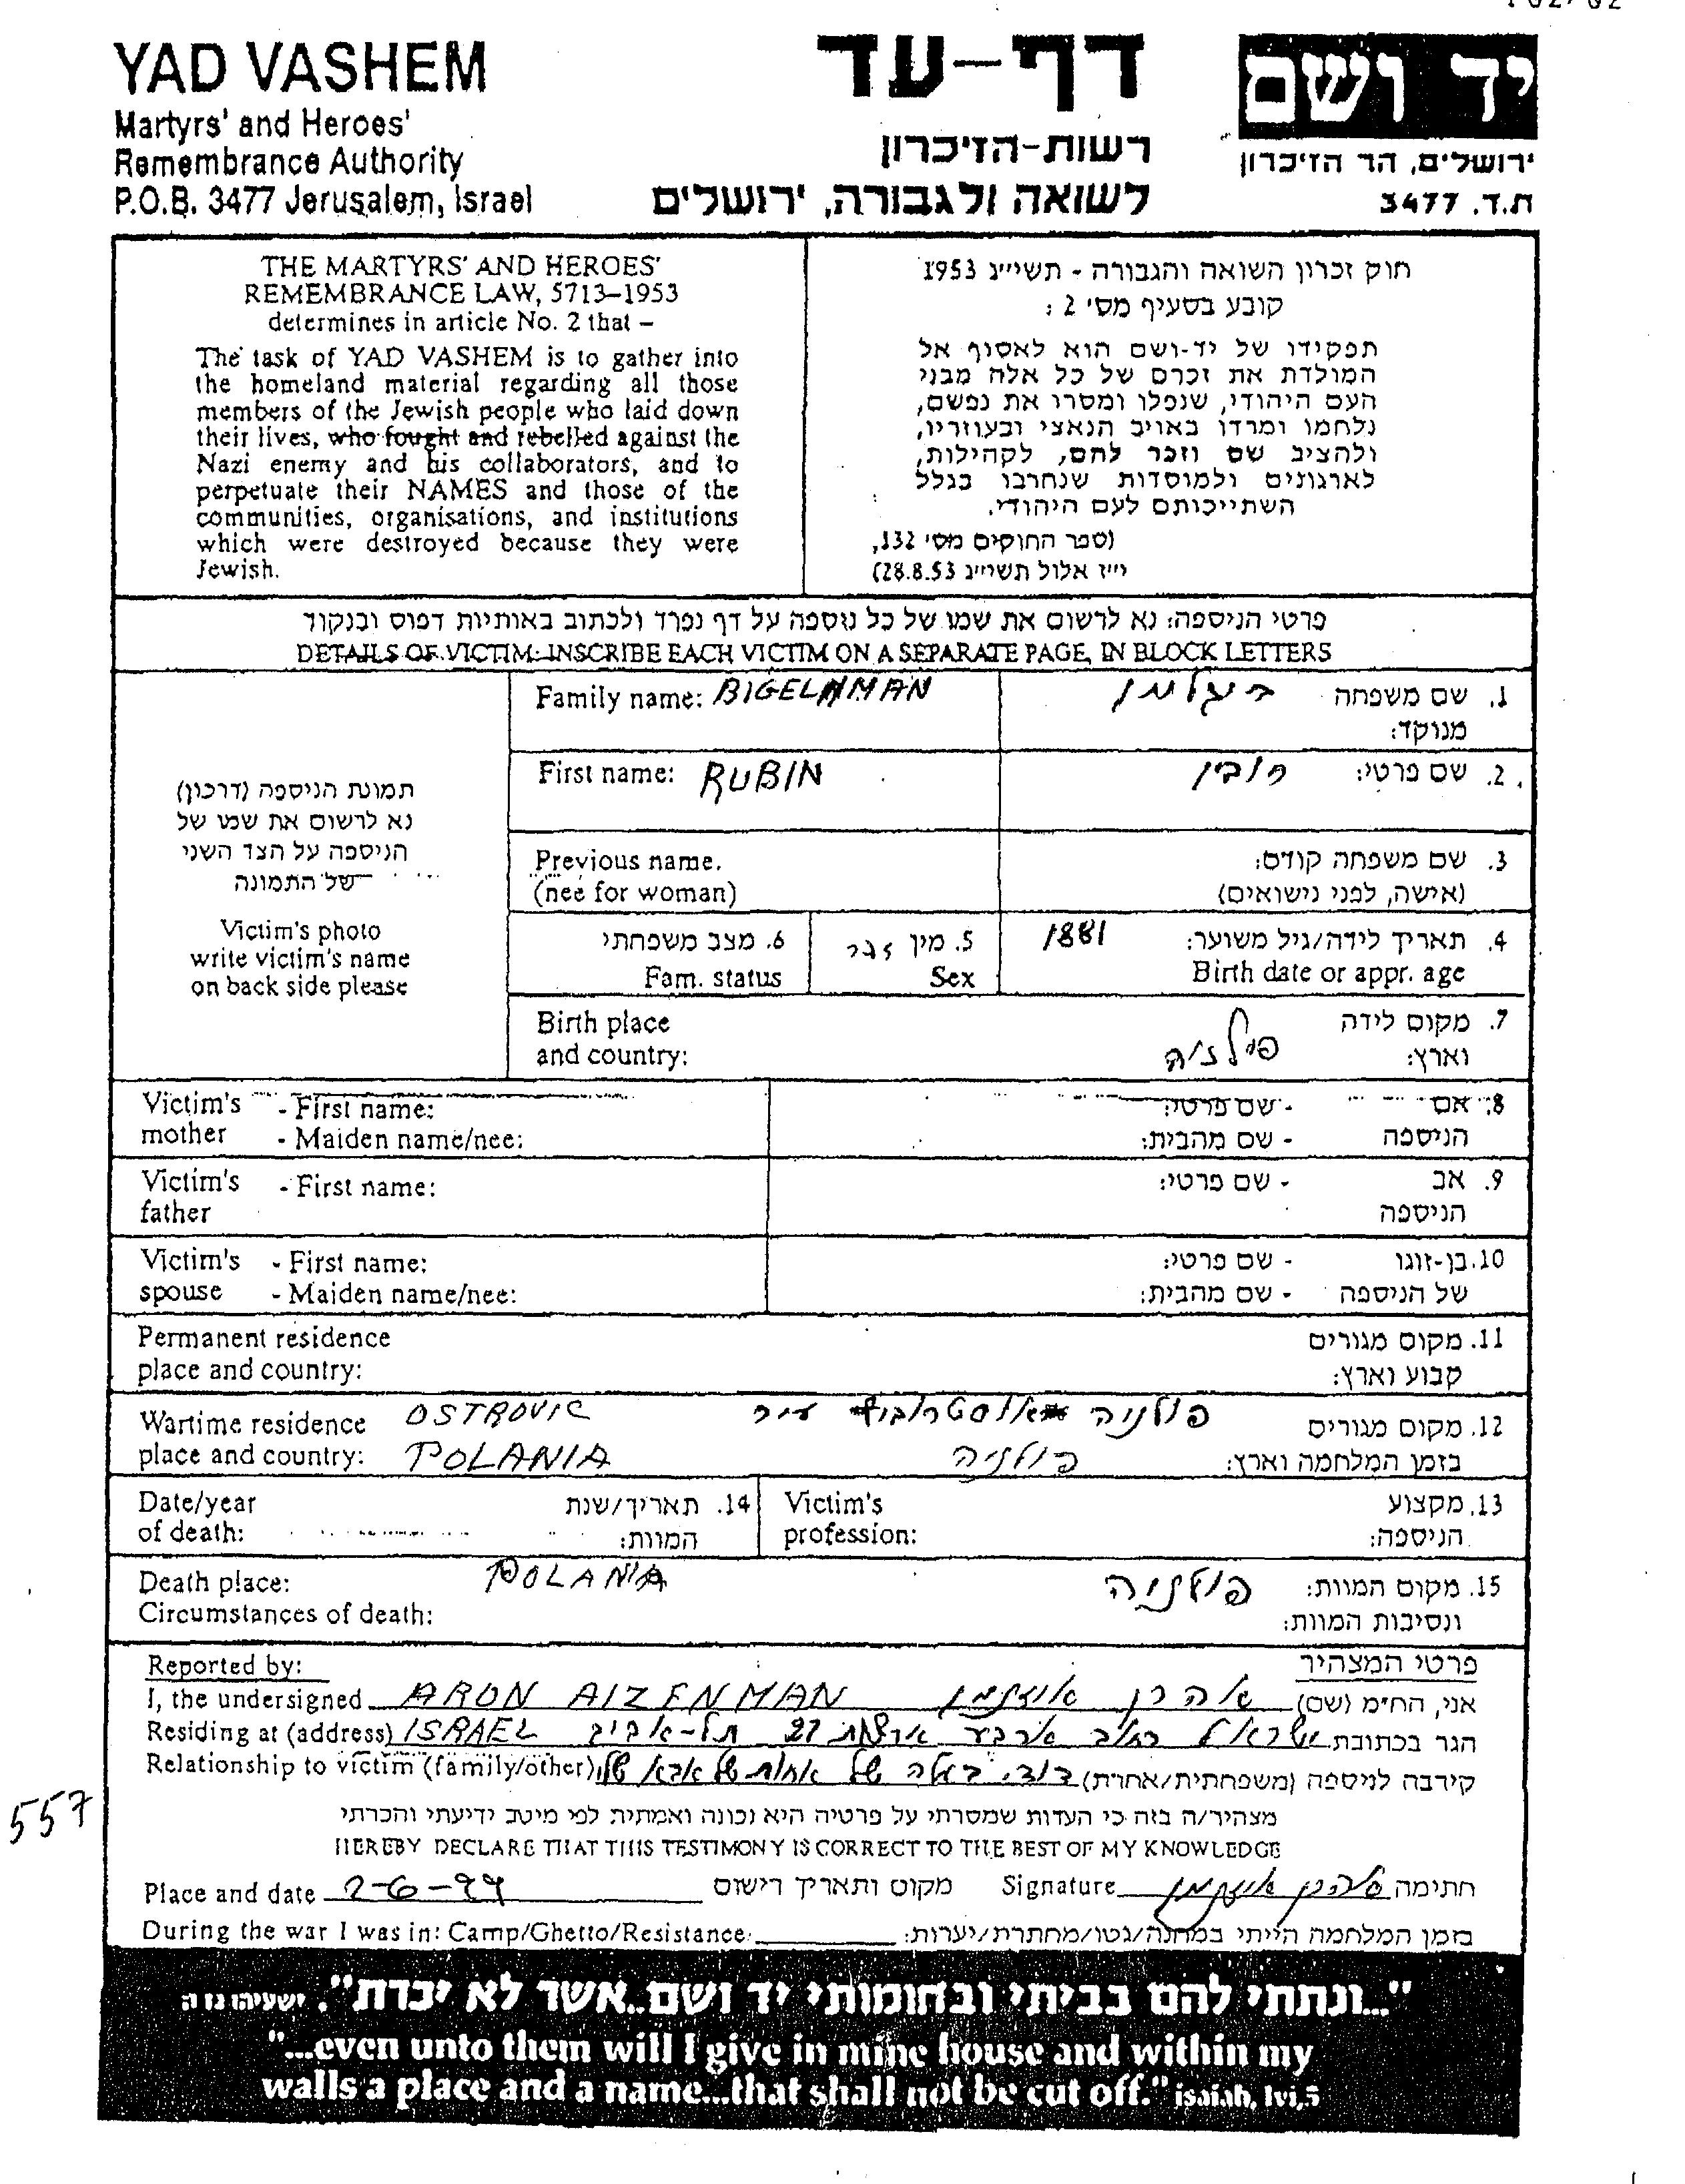 YAD VASHEM
Martyrs' and Heroes'
Remembrance Authority
P.O.B. 3477 Jerusalem, Israel
דף-עד
רשות-הזיכרון
לשואה ולגבורה, ירושלים
יד ושם
ירושלים, הר הזיכרון
ת.ד. 3477
THE MARTYRS' AND HEROES'
REMEMBRANCE LAW, 5713–1953
determines in article No. 2 that –
The task of YAD VASHEM is to gather into
the homeland material regarding all those
members of the Jewish people who laid down
their lives, who fought and rebelled against the
Nazi enemy and his collaborators, and to
perpetuate their NAMES and those of the
communities, organisations, and institutions
which were destroyed because they were
Jewish.
חוק זכרון השואה והגבורה - תשי״ג 1953
קובע בסעיף מס׳ 2 :
תפקידו של יד-ושם הוא לאסוף אל
המולדת את זכרם של כל אלה מבני
העם היהודי, שנפלו ומסרו את נפשם,
נלחמו ומרדו באויב הנאצי ובעוזריו,
ולהציב שם וזכר להם, לקהילות,
לארגונים ולמוסדות שנחרבו בגלל
השתייכותם לעם היהודי.
(ספר החוקים מס׳ 132,
י״ז אלול תשי״ג 28.8.53)
פרטי הניספה: נא לרשום את שמו של כל נוספה על דף נפרד ולכתוב באותיות דפוס ובנקוד
DETAILS OF VICTIM: INSCRIBE EACH VICTIM ON A SEPARATE PAGE, IN BLOCK LETTERS
תמונת הניספה (דרכון)
נא לרשום את שמו של
הניספה על הצד השני
של התמונה
Victim's photo
write victim's name
on back side please
Family name: BIGELAMAN ביגלמן 1. שם משפחה
מנוקד:
First name: RUBIN רובין 2. שם פרטי:
Previous name. 3. שם משפחה קודם:
(nee for woman) (אישה, לפני נישואים)
6. מצב משפחתי 5. מין זכר 1881 4. תאריך לידה/גיל משוער:
Fam. status Sex Birth date or appr. age
Birth place 7. מקום לידה
and country: פולניה וארץ:
Victim's - First name: - שם פרטי: 8. אם
mother - Maiden name/nee: - שם מהבית: הניספה
Victim's - First name: - שם פרטי: 9. אב
father הניספה
Victim's - First name: - שם פרטי: 10. בן-זוגו
spouse - Maiden name/nee: - שם מהבית: של הניספה
Permanent residence 11. מקום מגורים
place and country: קבוע וארץ:
Wartime residence OSTROVIC פולניה עיר 12. מקום מגורים
place and country: POLANIA פולניה בזמן המלחמה וארץ:
Date/year 14. תאריך/שנת Victim's 13. מקצוע
of death: המוות: profession: הניספה:
Death place: POLANIA פולניה 15. מקום המוות:
Circumstances of death: ונסיבות המוות:
Reported by: פרטי המצהיר
I, the undersigned ARON AIZENMAN אהרן איזנמן אני, הח״מ (שם)
Residing at (address) ISRAEL ישראל רחוב ארבע ארצות 27 תל-אביב הגר בכתובת
Relationship to victim (family/other) דודי, בעלה של אחות של אבא שלי קירבה לניספה (משפחתית/אחרת)
מצהיר/ה בזה כי העדות שמסרתי על פרטיה היא נכונה ואמתית לפי מיטב ידיעתי והכרתי
HEREBY DECLARE THAT THIS TESTIMONY IS CORRECT TO THE BEST OF MY KNOWLEDGE
557
Place and date 2-6-99 מקום ותאריך רישום Signature אהרן איזנמן חתימה
During the war I was in: Camp/Ghetto/Resistance: בזמן המלחמה הייתי במחנה/גטו/מחתרת/יערות:
"...ונתתי להם בביתי ובחומותי יד ושם..אשר לא יכרת". ישעיהו נו ה
"...even unto them will I give in mine house and within my
walls a place and a name...that shall not be cut off." isaiah, lvi,5